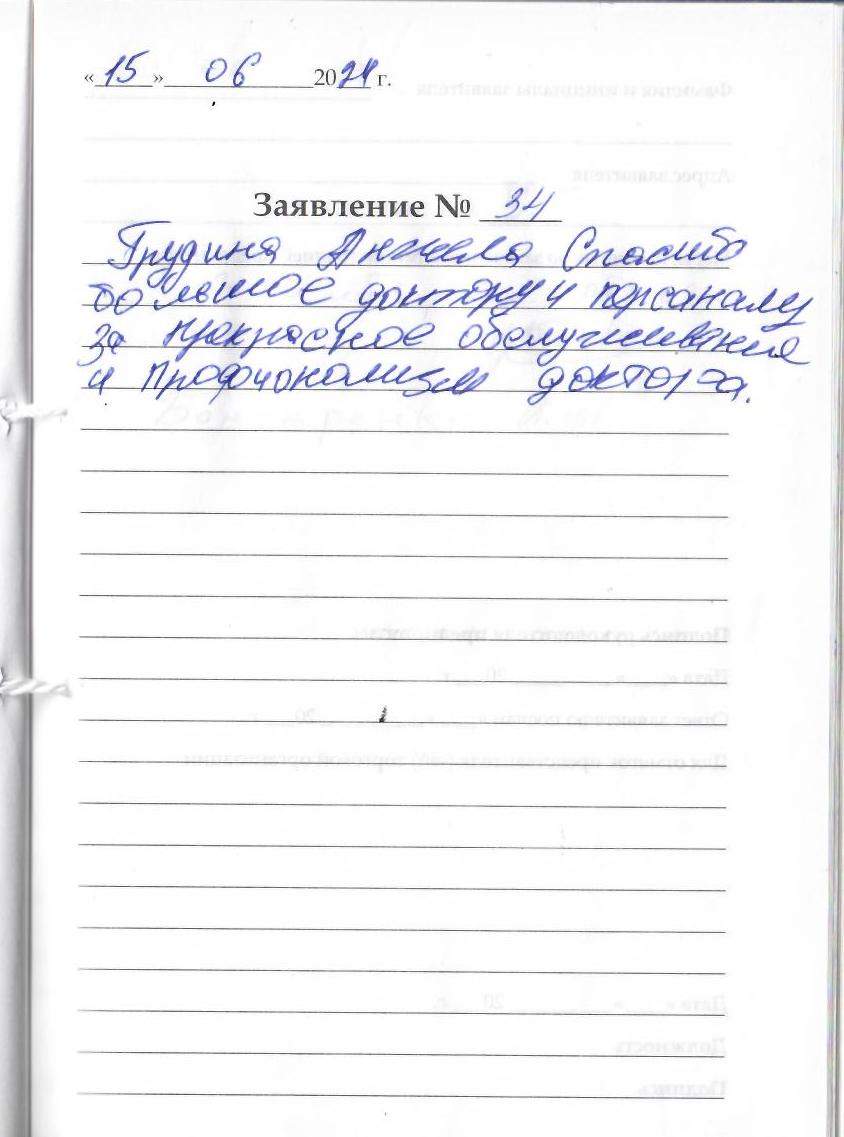 «15» 06 2021 г.
Заявление № 34
Грудина Анжела Спасибо
большое доктору и персаналу
за прекрасное обслуживание
и профочонализм доктора.